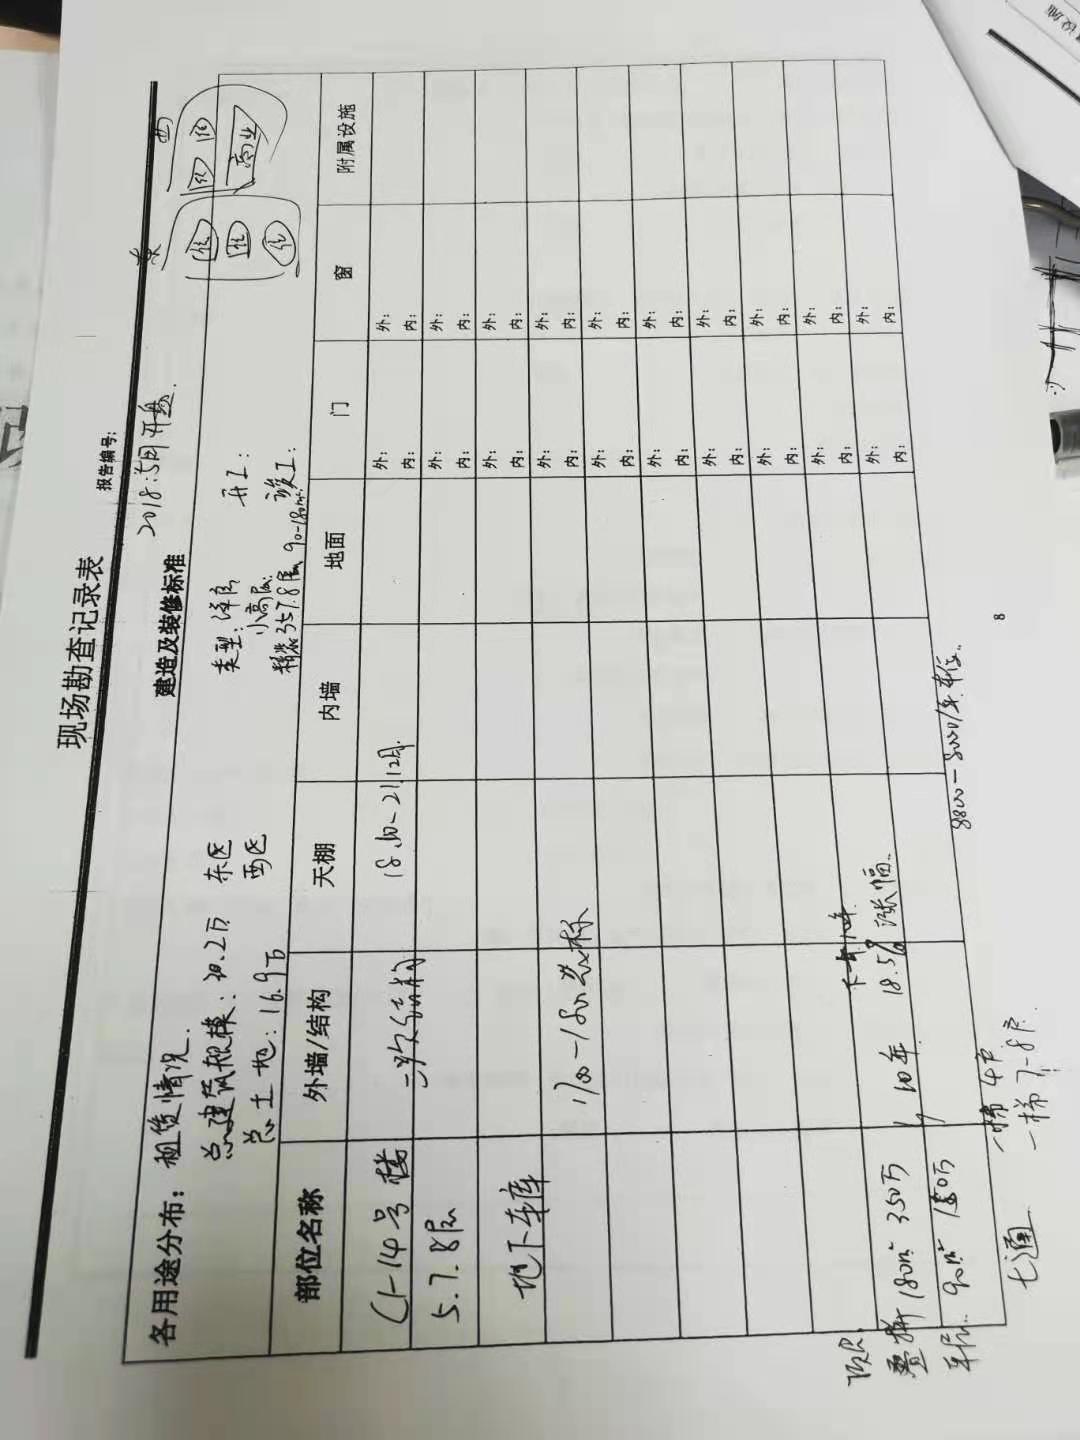 现场勘查记录表
报告编号：
2018.5月开盘.
建造及装修标准
东 西
各用途分布：租赁情况.
总建筑规模：30.2万 东区 类型：洋房 开工：
总土地：16.9万 西区 小高层 竣工：
精装 357.8层 90-180㎡
住 住 住 商业
部位名称 外墙/结构 天棚 内墙 地面 门 窗 附属设施
C1-14号楼 二次结构 18.10-21.12月.
5.7.8层
地下车库
1700-1800
外： 外：
内： 内：
外： 外：
内： 内：
外： 外：
内： 内：
外： 外：
内： 内：
外： 外：
内： 内：
外： 外：
内： 内：
外： 外：
内： 内：
外： 外：
内： 内：
外： 外：
内： 内：
外： 外：
内： 内：
叠拼 180㎡ 350万 10年 18.5% 涨幅.
90㎡ 180万
8800-8000/年 车位.
一梯4户
七通 一梯7-8户.
8